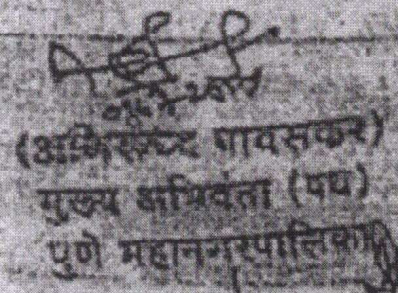 (अनिरुध्द पावसकर)
मुख्य अभियंता (पथ)
पुणे महानगरपालिका